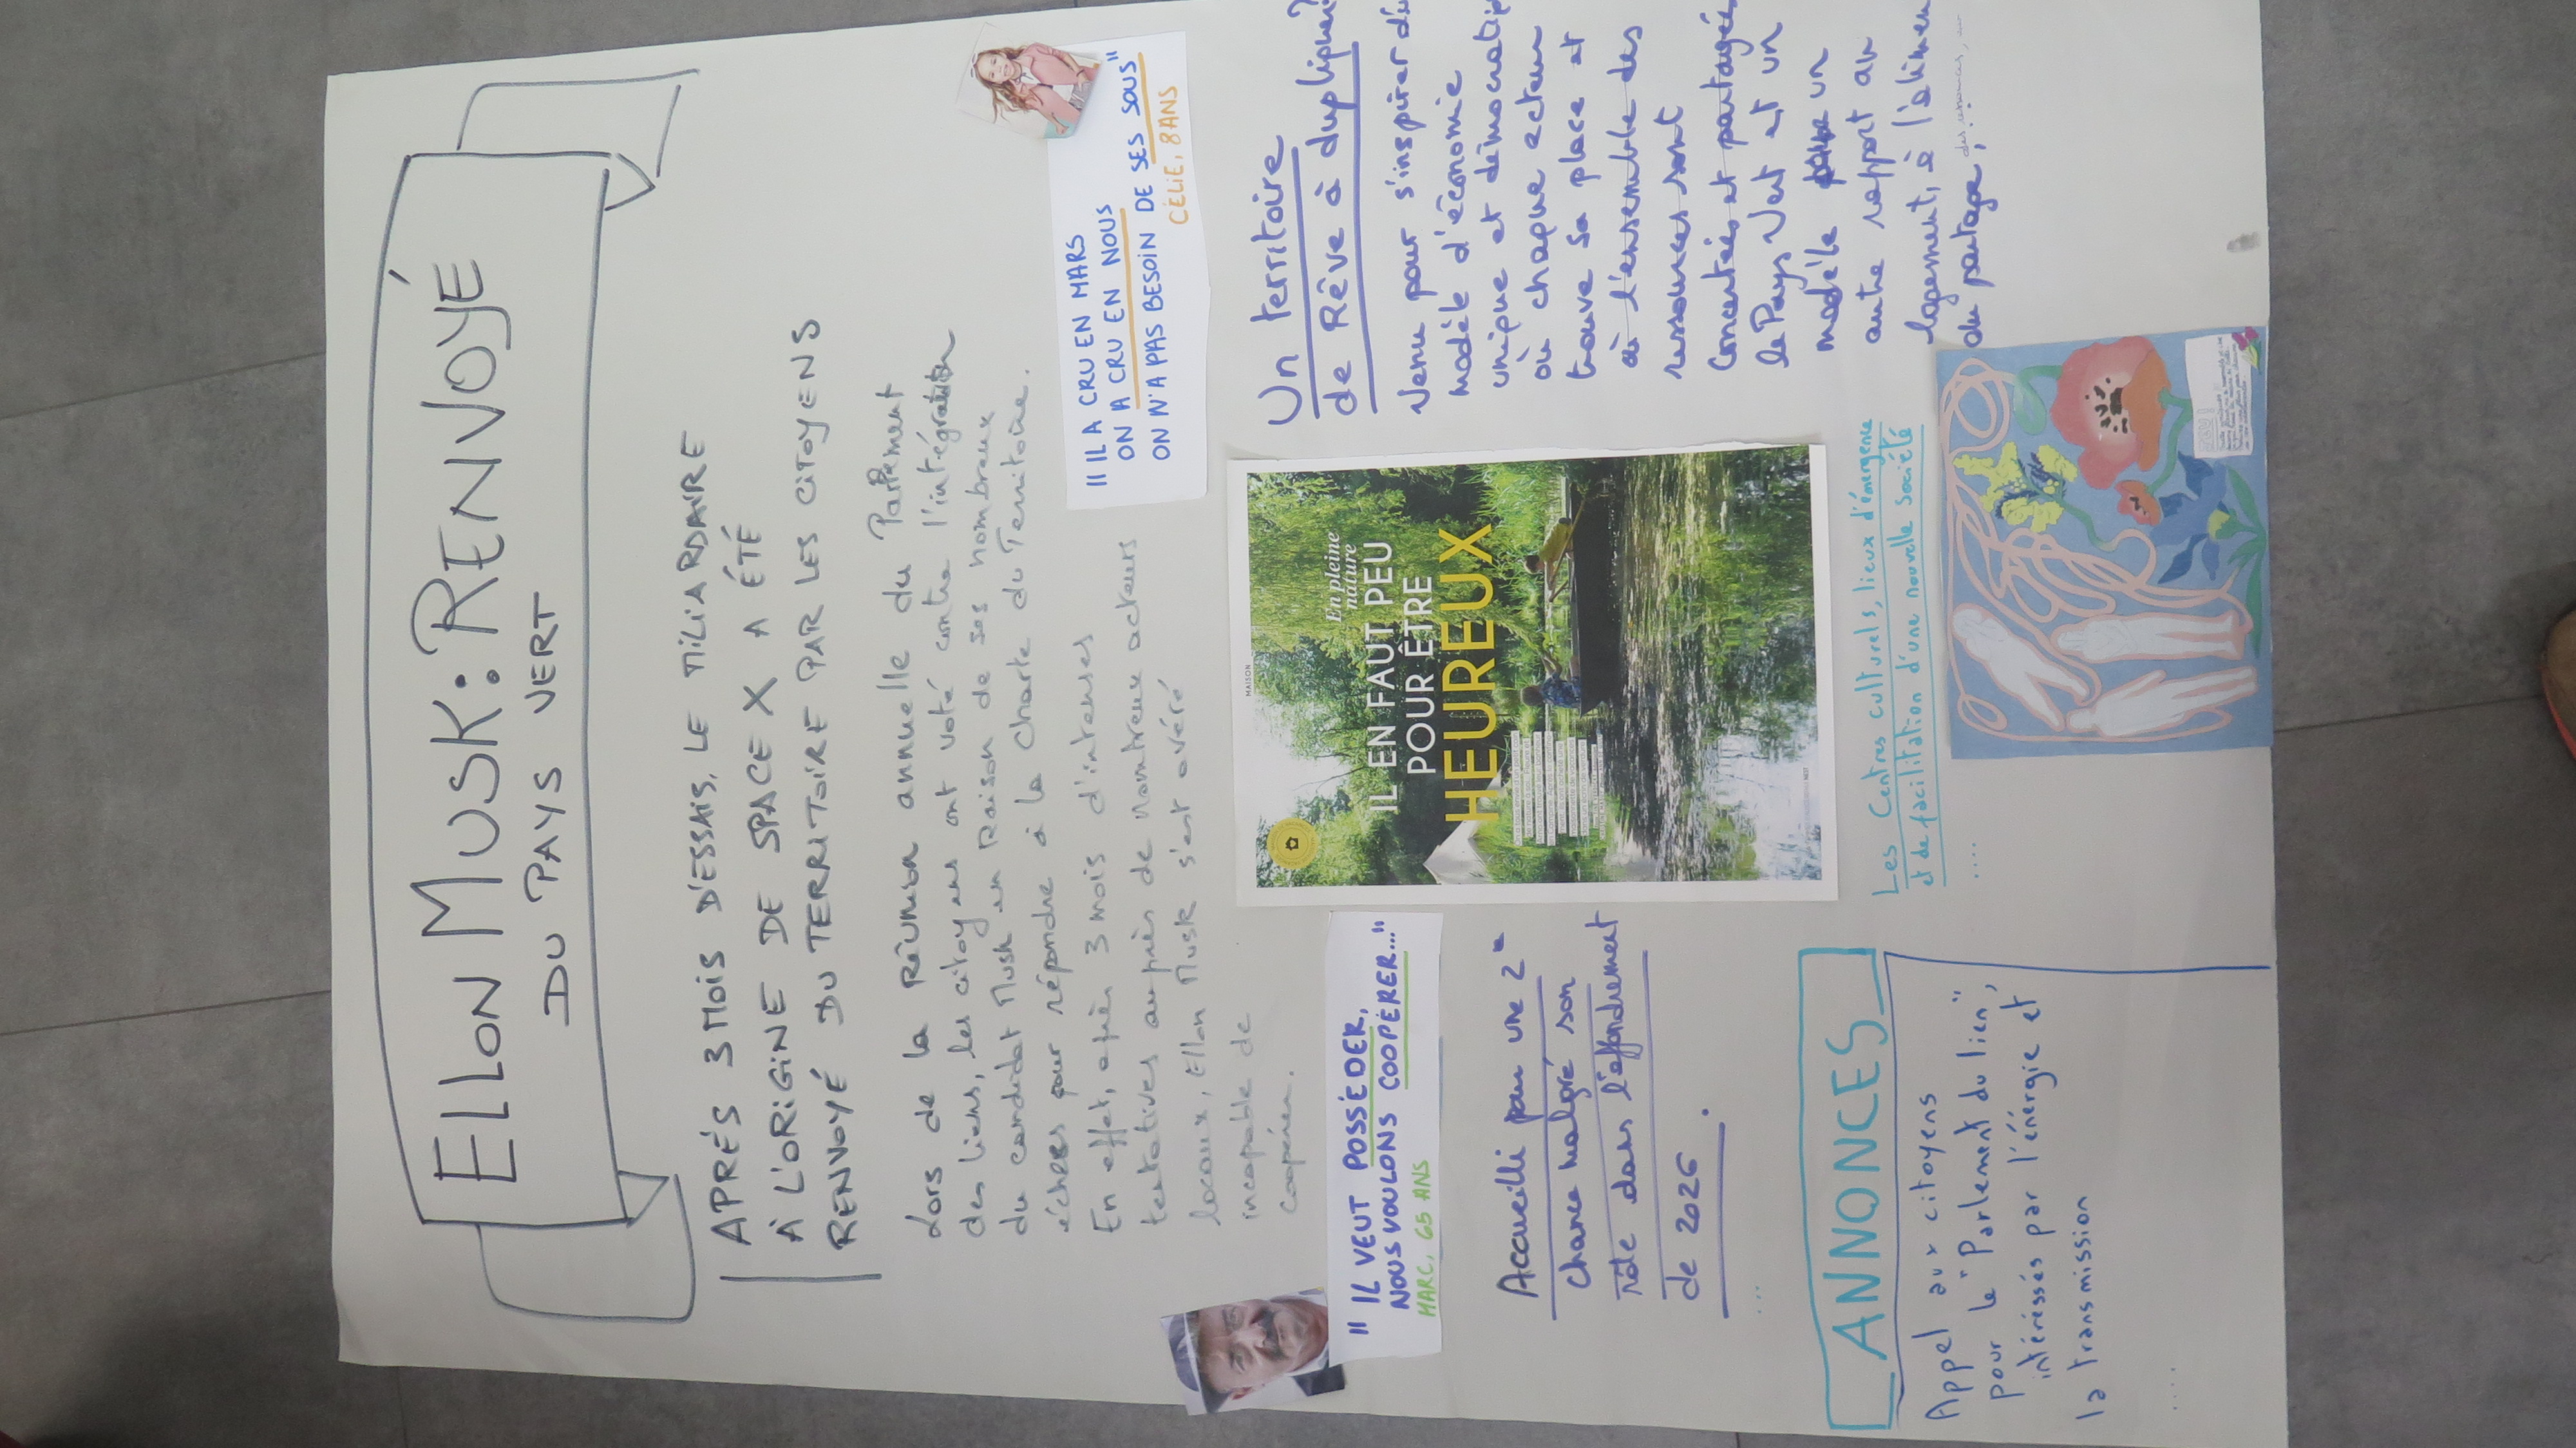 ELLON MUSK : RENVOYÉ
DU PAYS VERT
APRÉS 3 MOIS D'ESSAIS, LE MILIARDAIRE
À L'ORIGINE DE SPACE X A ÉTÉ
RENVOYÉ DU TERRITOIRE PAR LES CITOYENS
Lors de la Réunion annuelle du Parlement
des liens, les citoyens ont voté contre l'intégration
du candidat Musk en raison de ses nombreux
échecs pour répondre à la Charte du Territoire.
En effet, après 3 mois d'intenses
tentatives auprès de nombreux acteurs
locaux, Ellon Musk s'est avéré
incapable de
coopérer.
" IL A CRU EN MARS
ON A CRU EN NOUS
ON N'A PAS BESOIN DE SES SOUS"
CÉLIE, 8 ANS
" IL VEUT POSSÉDER,
NOUS VOULONS COOPÉRER..."
MARC, 65 ANS
Accueilli pour une 2e
chance malgré son
rôle dans l'effondrement
de 2026
....
MAISON
En pleine
nature
IL EN FAUT PEU
POUR ÊTRE
HEUREUX
Un territoire
de Rêve à dupliquer?
Venu pour s'inspirer du
modèle d'économie
unique et démocratiq
où chaque acteur
trouve sa place et
où l'ensemble des
ressources sont
concertées et partagées
le Pays Vert est un
modèle pour un
autre rapport au
logement, à l'alimen
du partage, des ressources, ...
ANNONCES
Appel aux citoyens
pour le "Parlement du lien",
intéréssés par l'énergie et
la transmission
....
Les Centres culturels, lieux d'émergence
et de facilitation d'une nouvelle société
....